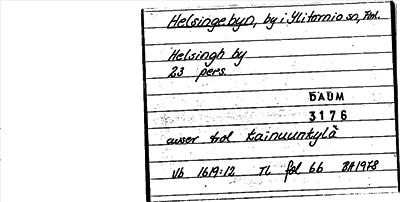 Helsingebyn, by i Ylitornio sn, Finl.
Helsingh by
23 pers.
DAUM
3176
avser trol Kainuunkylä
Vb 1619:12 TL fol 66 BA 1978